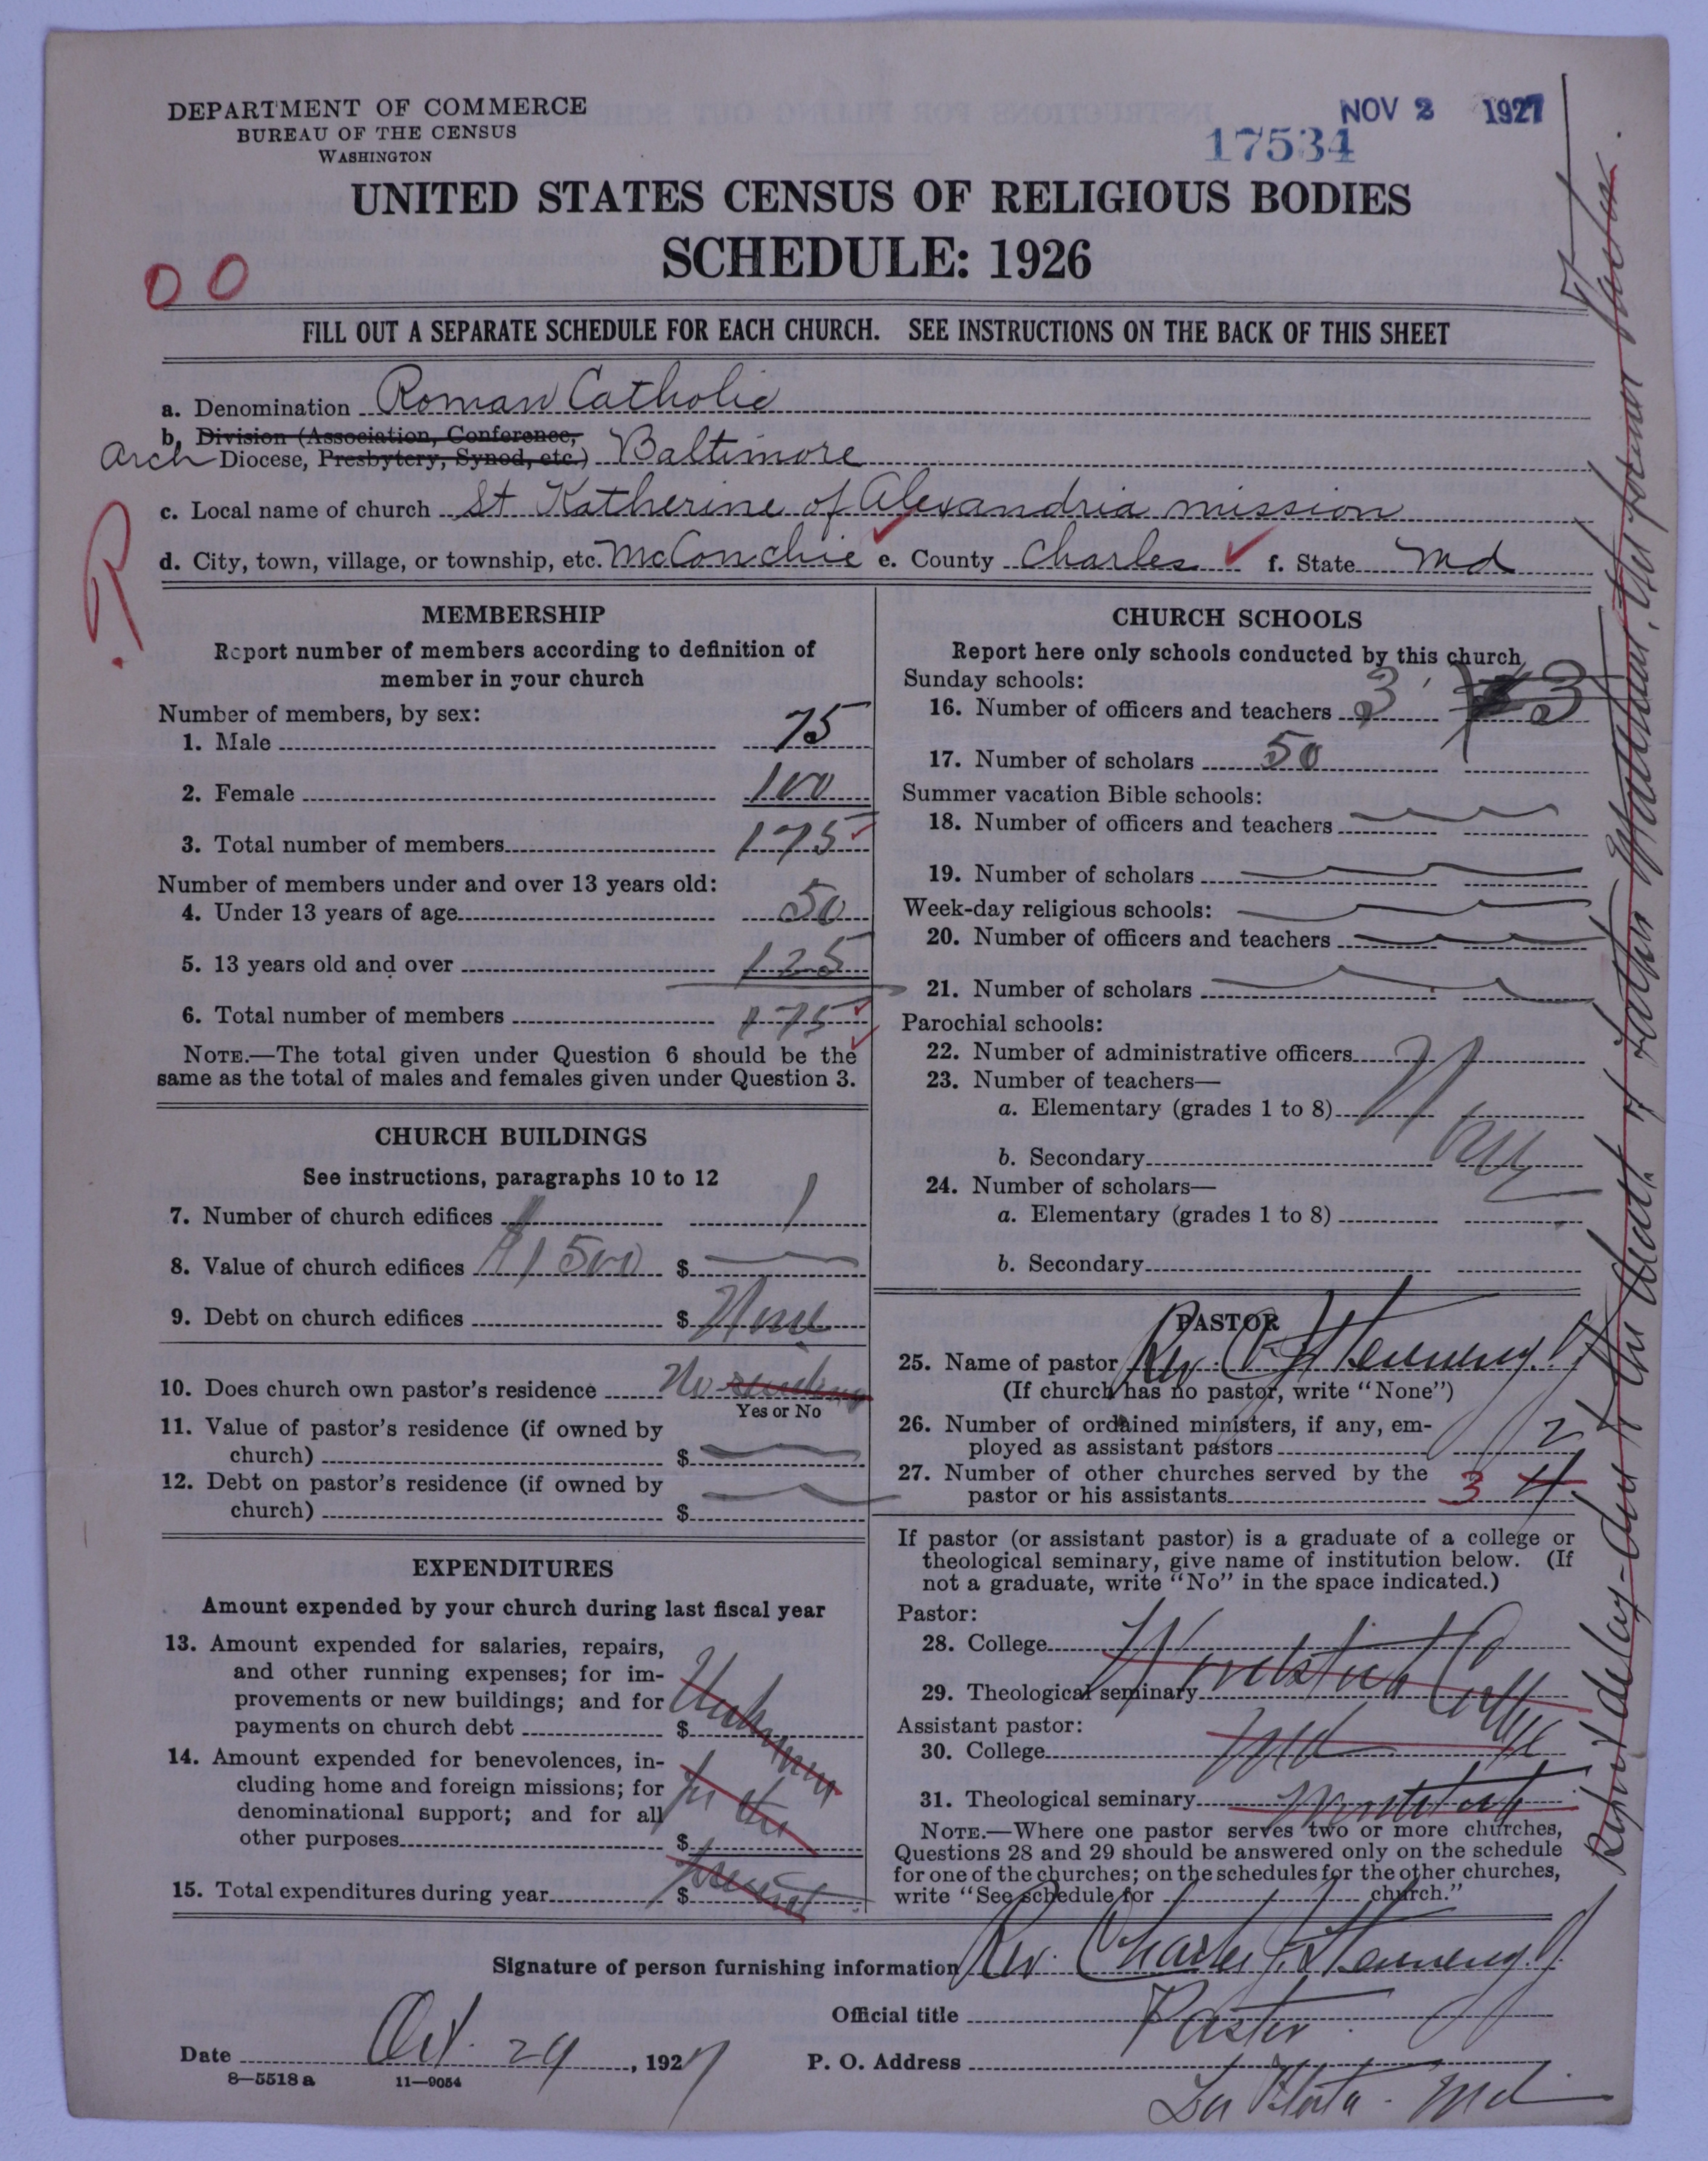 DEPARTMENT OF COMMERCE
BUREAU OF THE CENSUS
WASHINGTON
NOV 2 1927
17534
UNITED STATES CENSUS OF RELIGIOUS BODIES
SCHEDULE: 1926
00
FILL OUT A SEPARATE SCHEDULE FOR EACH CHURCH. SEE INSTRUCTIONS ON THE BACK OF THIS SHEET
a. Denomination Roman Catholic
b. Division (Association, Conference,
Arch Diocese, Presbytery, Synod, etc.) Baltimore
c. Local name of church St Katherine of Alexandria mission
d. City, town, village, or township, etc. McConchie e. County Charles f. State Md
R.
MEMBERSHIP
Report number of members according to definition of
member in your church
Number of members, by sex:
1. Male 75
2. Female 100
3. Total number of members 175
Number of members under and over 13 years old:
4. Under 13 years of age 50
5. 13 years old and over 125
6. Total number of members 175
NOTE.—The total given under Question 6 should be the
same as the total of males and females given under Question 3.
CHURCH BUILDINGS
See instructions, paragraphs 10 to 12
7. Number of church edifices 1
8. Value of church edifices $1500 $
9. Debt on church edifices $ None
10. Does church own pastor's residence No
Yes or No
11. Value of pastor's residence (if owned by
church) $
12. Debt on pastor's residence (if owned by
church) $
EXPENDITURES
Amount expended by your church during last fiscal year
13. Amount expended for salaries, repairs,
and other running expenses; for im-
provements or new buildings; and for
payments on church debt $ Unknown
14. Amount expended for benevolences, in-
cluding home and foreign missions; for
denominational support; and for all
other purposes $ for the
15. Total expenditures during year $ present
CHURCH SCHOOLS
Report here only schools conducted by this church
Sunday schools:
16. Number of officers and teachers 3 3
17. Number of scholars 50
Summer vacation Bible schools:
18. Number of officers and teachers
19. Number of scholars
Week-day religious schools:
20. Number of officers and teachers
21. Number of scholars
Parochial schools:
22. Number of administrative officers
23. Number of teachers—
a. Elementary (grades 1 to 8)
b. Secondary
24. Number of scholars—
a. Elementary (grades 1 to 8)
b. Secondary
PASTOR
25. Name of pastor Rev. C. J. Hennessy S.J.
(If church has no pastor, write "None")
26. Number of ordained ministers, if any, em-
ployed as assistant pastors 2
27. Number of other churches served by the
pastor or his assistants 3 4
If pastor (or assistant pastor) is a graduate of a college or
theological seminary, give name of institution below. (If
not a graduate, write "No" in the space indicated.)
Pastor:
28. College Woodstock College
29. Theological seminary
Assistant pastor:
30. College Md
31. Theological seminary Woodstock
NOTE.—Where one pastor serves two or more churches,
Questions 28 and 29 should be answered only on the schedule
for one of the churches; on the schedules for the other churches,
write "See schedule for church."
Signature of person furnishing information Rev. Charles J. Hennessy S.J.
Official title Pastor
Date Oct. 29, 1927 P. O. Address
La Plata - Md
8—5518a 11—9054
delay - due to the death of Father the former Pastor.